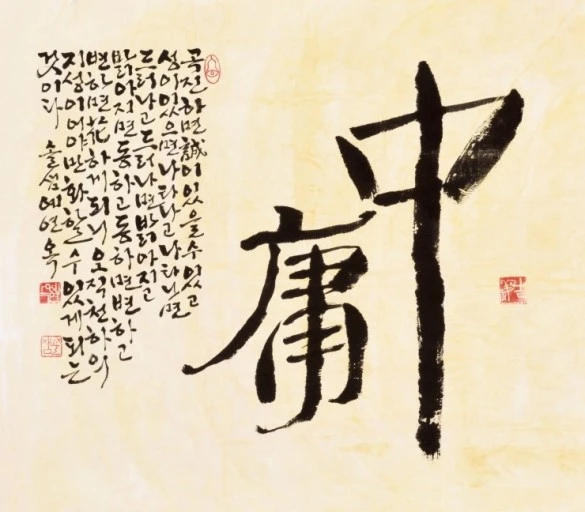 中庸
곡진하면 誠이 있을 수 있고
성이 있으면 나타나고 나타나면
드러나고 드러나면 밝아지고
밝아지면 동하고 동하면 변하고
변하면 花하게 되니 오직 천하의
지성이어야만 화할 수 있게 되는
것이다 솔샘 예연옥